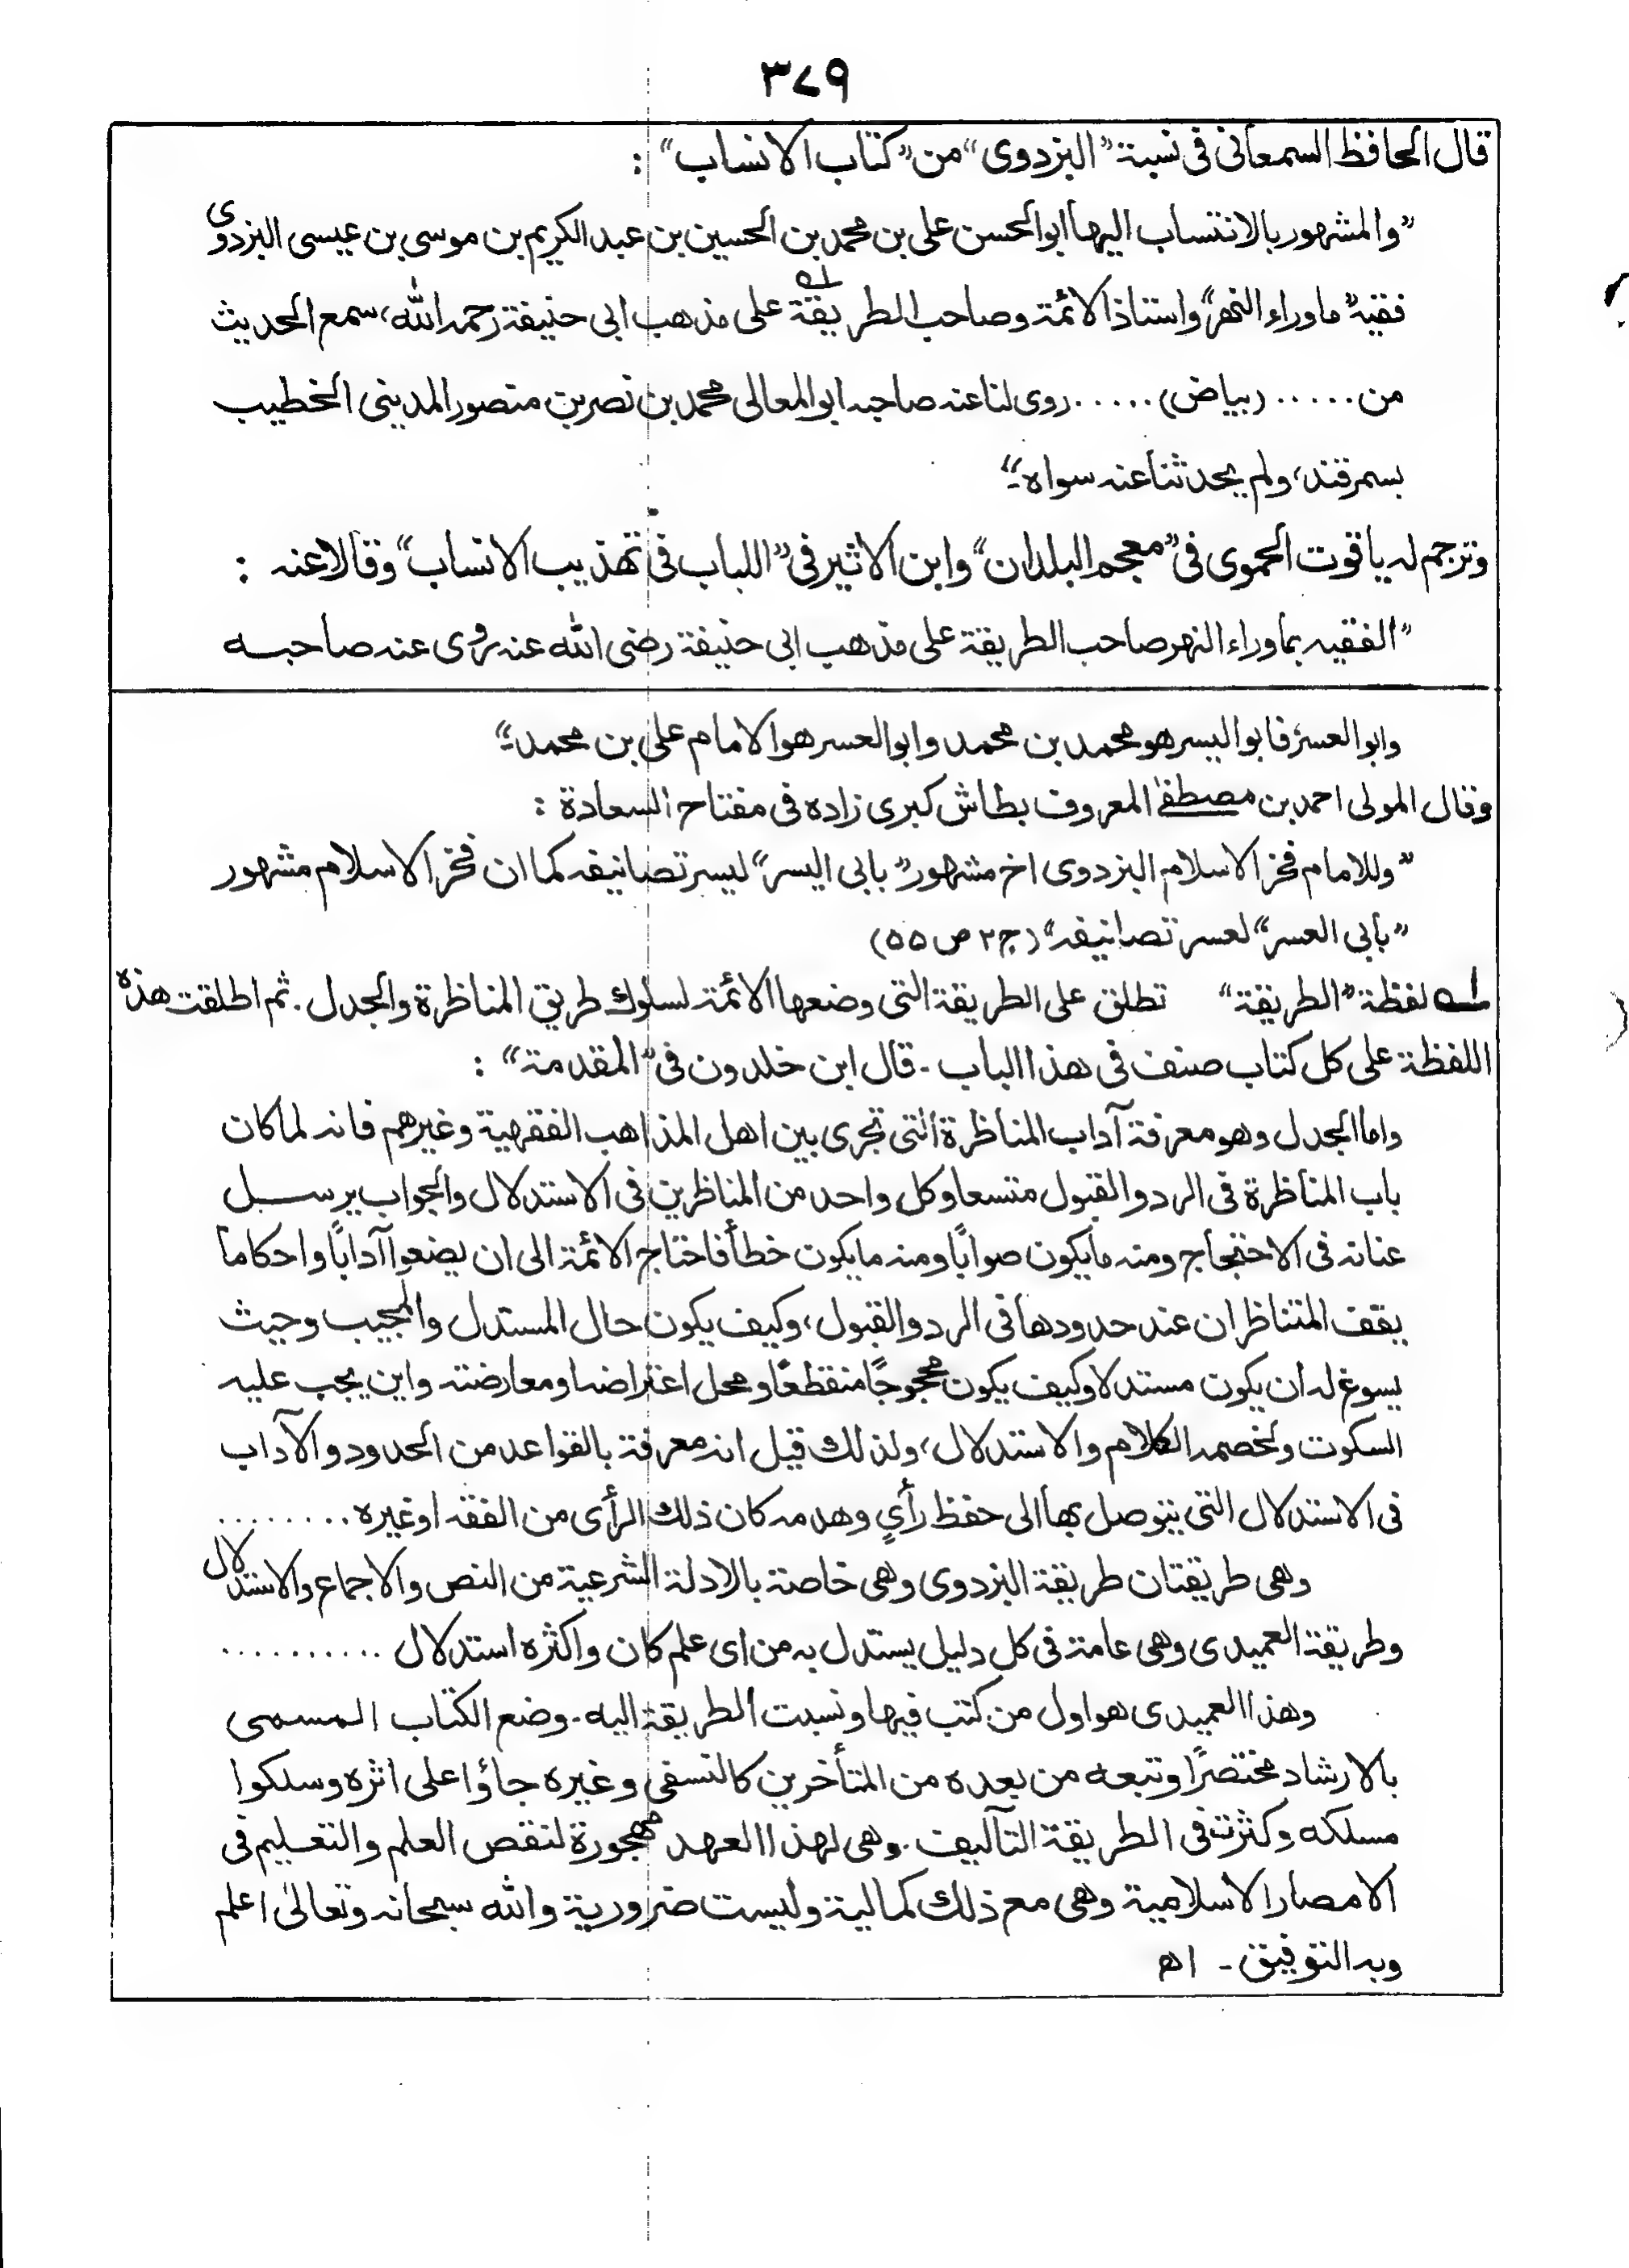 ٣٧٩
قال الحافظ السمعانی فی نسبة "البزدوی" من "کتاب الانساب" :
"والمشہور بالانتساب الیہا ابو الحسن علی بن محمد بن الحسین بن عبد الکریم بن موسی بن عیسی البزدوی
فقیہ "ما وراء النہر" واستاذ الائمة وصاحب الطریقة لہ علی مذهب ابی حنیفة رحمہ اللہ، سمع الحدیث
من ..... (بیاض) ..... روی لنا عنہ صاحبہ ابو المعالی محمد بن نصر بن منصور المدینی الخطیب
بسمرقند، ولم یحدثنا عنہ سواہ"۔
وترجم لہ یاقوت الحموی فی "معجم البلدان" وابن الاثیر فی "اللباب فی تہذیب الانساب" وقالا عنہ :
"الفقیہ بما وراء النہر صاحب الطریقة علی مذهب ابی حنیفة رضی اللہ عنہ روی عنہ صاحبه
وابو العسر، فابو الیسر هو محمد بن محمد وابو العسر هو الامام علی بن محمد"۔
وقال المولی احمد بن مصطفیٰ المعروف بطاش کبری زادہ فی مفتاح السعادة :
"وللامام فخر الاسلام البزدوی اخ مشہور "بابی الیسر" لیسر تصانیفہ کما ان فخر الاسلام مشہور
"بابی العسر" لعسر تصانیفہ" (ج ۲ ص ۵۵)
لہ لفظة "الطریقة" تطلق علی الطریقة التی وضعہا الائمة لسلوك طریق المناظرة والجدل. ثم اطلقت هذه
اللفظة علی کل کتاب صنف فی هذا الباب - قال ابن خلدون فی "المقدمة" :
واما الجدل وهو معرفة آداب المناظرة التی تجری بین اهل المذاهب الفقهیة وغیرهم فانہ لما کان
باب المناظرة فی الرد والقبول متسعا وکل واحد من المناظرین فی الاستدلال والجواب یرسل
عنانہ فی الاحتجاج ومنہ ما یکون صوابًا ومنہ ما یکون خطأ فاحتاج الائمة الی ان یضعوا آدابًا واحکاماً
یقف المتناظران عند حدودها فی الرد والقبول، وکیف یکون حال المستدل والمجیب وحیث
یسوغ لہ ان یکون مستدلا وکیف یکون محجوجًا منقطعًا ومحل اعتراضہ او معارضتہ واین یجب علیہ
السکوت ولخصمہ الکلام والاستدلال، ولذلك قیل انہ معرفة بالقواعد من الحدود والآداب
فی الاستدلال التی یتوصل بہا الی حفظ رأیٍ وهدمہ کان ذلك الرأی من الفقہ او غیرہ ........
وهی طریقتان طریقة البزدوی وهی خاصة بالادلة الشرعیة من النص والاجماع والاستدلال
وطریقة العمیدی وهی عامة فی کل دلیل یستدل بہ من ای علم کان واکثرہ استدلال ..........
وهذا العمیدی هو اول من کتب فیہا ونسبت الطریقة الیہ - وضع الکتاب المسمی
بالارشاد مختصرًا وتبعه من بعده من المتأخرین کالنسفی وغیرہ جاؤا علی اثرہ وسلکوا
مسلکه وکثرت فی الطریقة التآلیف. وهی لهذا العہد مهجورة لنقص العلم والتعلیم فی
الامصار الاسلامیة وهی مع ذلك کمالیة ولیست ضروریة واللہ سبحانہ وتعالیٰ اعلم
وبہ التوفیق - اھ